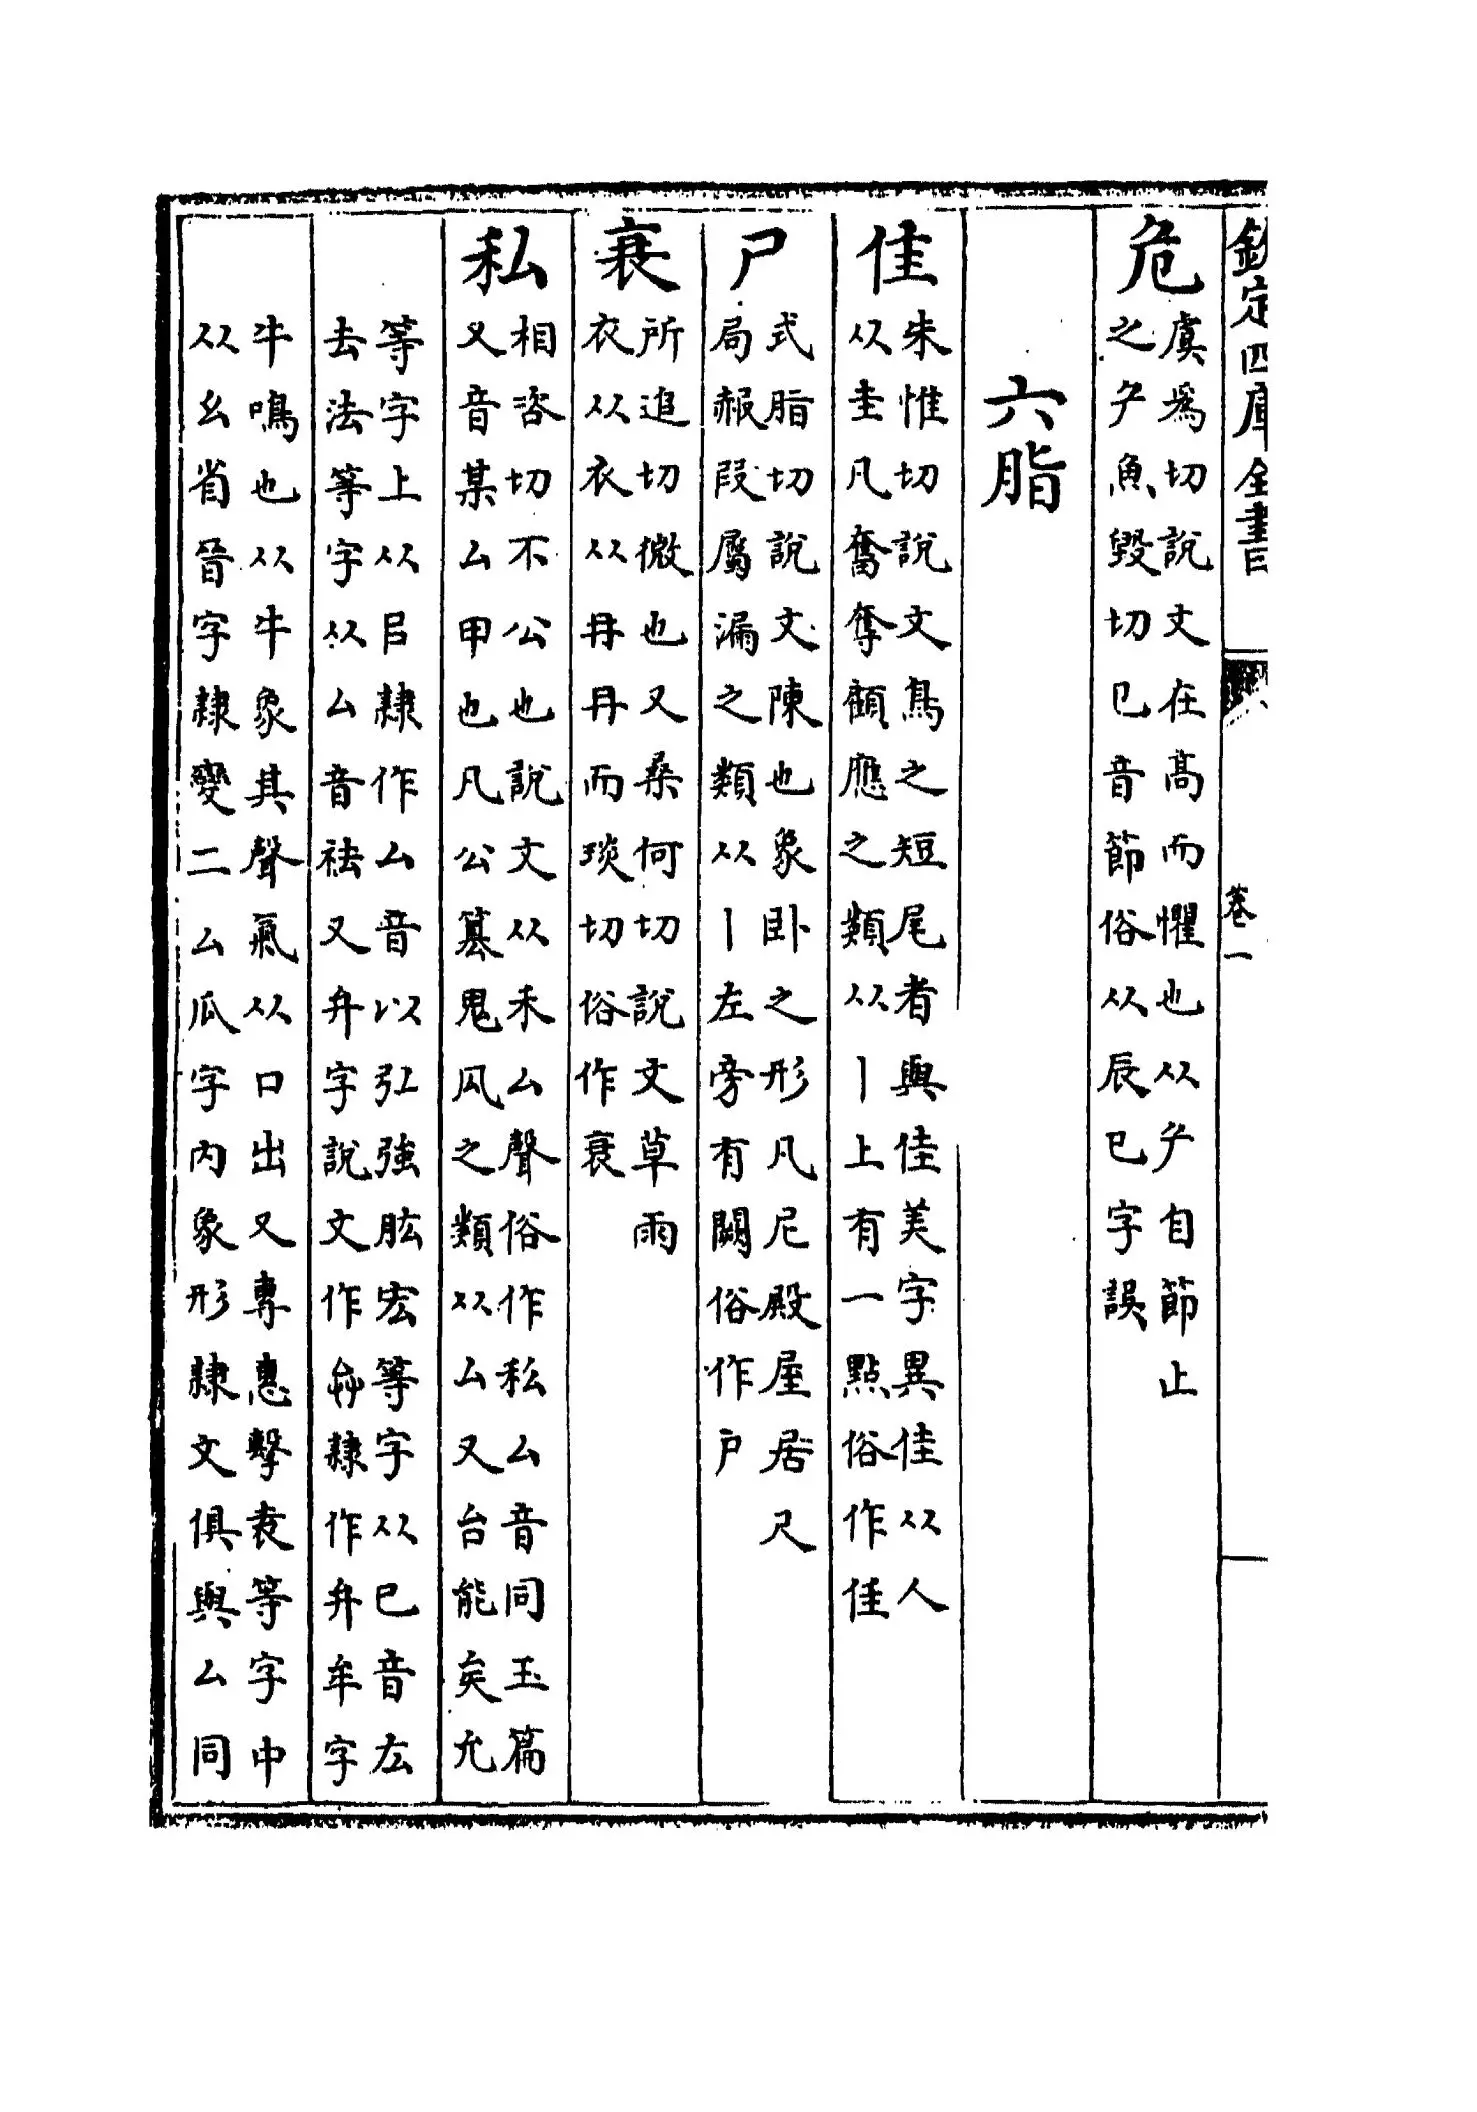 欽定四庫全書
卷一
危
虞爲切說文在高而懼也从厃自節止
之厃魚毀切㔾音節俗从辰巳字誤
六脂
隹
朱惟切說文鳥之短尾者與佳美字異佳从人
从圭凡奮奪顧應之類从丨上有一點俗作佳
尸
式脂切說文陳也象卧之形凡尼殿屋居尺
局赧段屬漏之類从丨左旁有闕俗作户
衰
所追切微也又桑何切說文草雨
衣从衣从冄冄而琰切俗作衰
私
相咨切不公也說文从禾厶聲俗作私厶音同玉篇
又音某厶甲也凡公篡鬼風之類从厶又台能矣允
等字上从㠯隷作厶音以弘強肱宏等字从巳音厷
去法等字从厶音祛又弁字說文作㝸隷作弁牟字
牛鳴也从牛牛象其聲氣从口出又專惠擊袁等字中
从幺省晉字隷變二厶瓜字内象形隷文俱與厶同